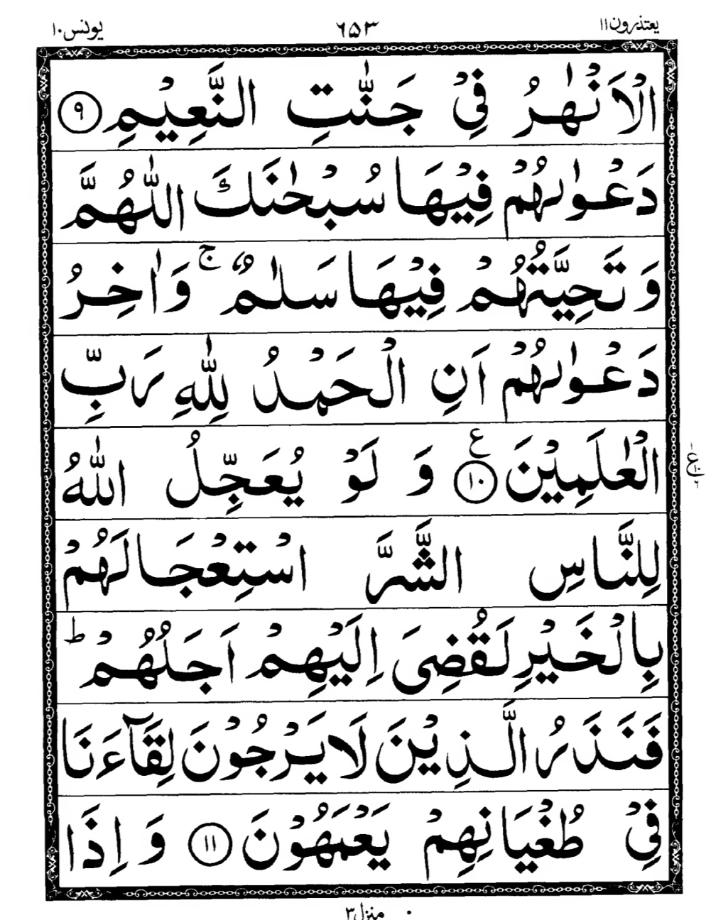 يعتذرون۱۱ ۶۵۳ يونس۱۰
الْاَنْهٰرُ فِيْ جَنّٰتِ النَّعِيْمِ ۹
دَعْوٰىهُمْ فِيْهَا سُبْحٰنَكَ اللّٰهُمَّ
وَ تَحِيَّتُهُمْ فِيْهَا سَلٰمٌ ۚ وَاٰخِرُ
دَعْوٰىهُمْ اَنِ الْحَمْدُ لِلّٰهِ رَبِّ
الْعٰلَمِيْنَ ۱۰ ع وَ لَوْ يُعَجِّلُ اللّٰهُ
لِلنَّاسِ الشَّرَّ اسْتِعْجَالَهُمْ
بِالْخَيْرِ لَقُضِيَ اِلَيْهِمْ اَجَلُهُمْ ؕ
فَنَذَرُ الَّذِيْنَ لَا يَرْجُوْنَ لِقَآءَنَا
فِيْ طُغْيَانِهِمْ يَعْمَهُوْنَ ۱۱ وَ اِذَا
منزل۳